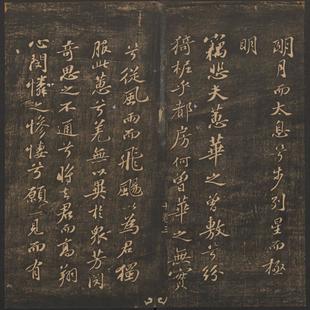 明月而太息兮步列星而極
明
竊悲夫蕙華之曾敷兮紛
猗柅乎都房何曾華之無實
兮從風雨而飛颺以為君獨
服此蕙兮羌無以異於衆芳閔
奇思之不通兮將去君而高翔
心閔憐之慘悽兮願一見而有